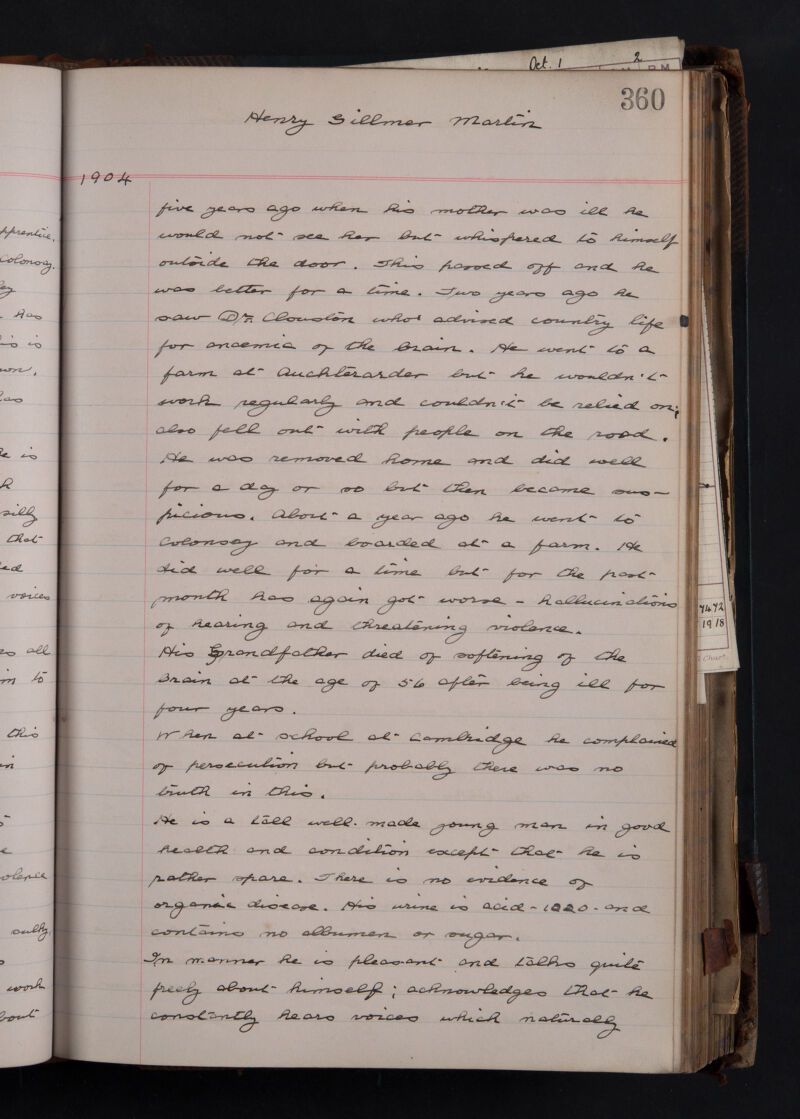 Oct. 1 2
P M
360
Henry Sillmer Martin
1904
five years ago when his mother was ill he
would not see her but whispered to himself
outside the door. This passed off and he
was better for a time. Two years ago he
saw Dr. Clouston who advised country life
for anaemia of the brain. He went to a
farm at Auchterarder but he wouldn't
work regularly and couldn't be relied on;
also fell out with people on the road.
He was removed home and did well
for a day or so but then became sus-
picious. About a year ago he went to
Colonsay and boarded at a farm. He
did well for a time but for the past
month has again got worse - hallucinations
of hearing and threatening violence.
His Grandfather died of softening of the
Brain at the age of 56 after being ill for
four years.
When at school at Cambridge he complained
of persecution but probably there was no
truth in this.
He is a tall well-made young man in good
health and condition except that he is
rather spare. There is no evidence of
organic disease. His urine is acid - 1020 - and
contains no albumen or sugar.
In manner he is pleasant and talks quite
freely about himself; acknowledges that he
constantly hears voices which naturally
pprentice.
Colonsay.
Has
is is
is
silly
that
ed
voices
all
to
this
in
olence
work
bout
7472
1918
Chart